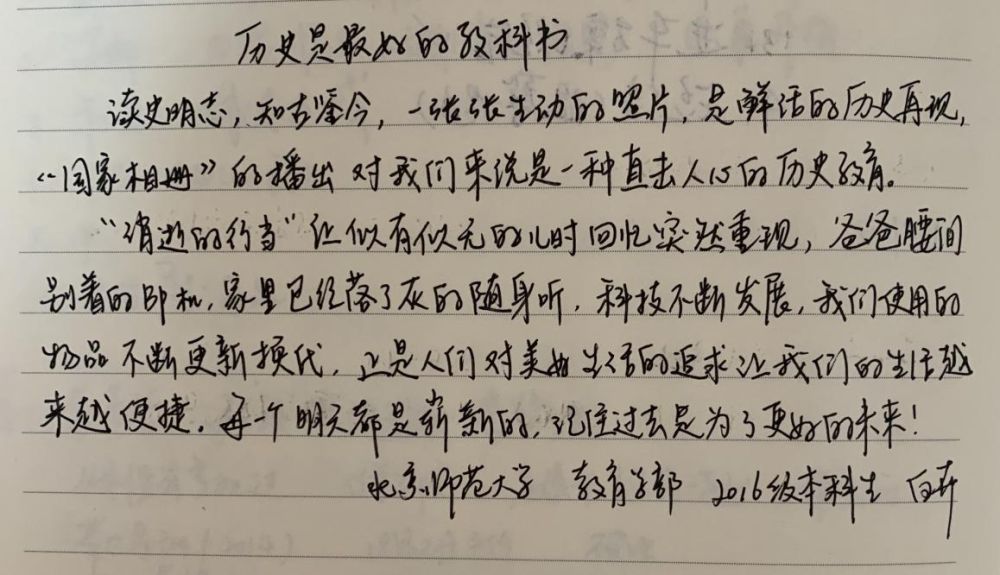 历史是最好的教科书。
读史明志，知古鉴今，一张张生动的照片，是鲜活的历史再现，
“国家相册”的播出对我们来说是一种直击人心的历史教育。
“消逝的行当”让似有似无的儿时回忆突然重现，爸爸腰间
别着的BP机，家里已经落了灰的随身听，科技不断发展，我们使用的
物品不断更新换代，正是人们对美好生活的追求让我们的生活越
来越便捷。每一个明天都是崭新的，记住过去是为了更好的未来！
北京师范大学 教育学部 2016级本科生 白卉